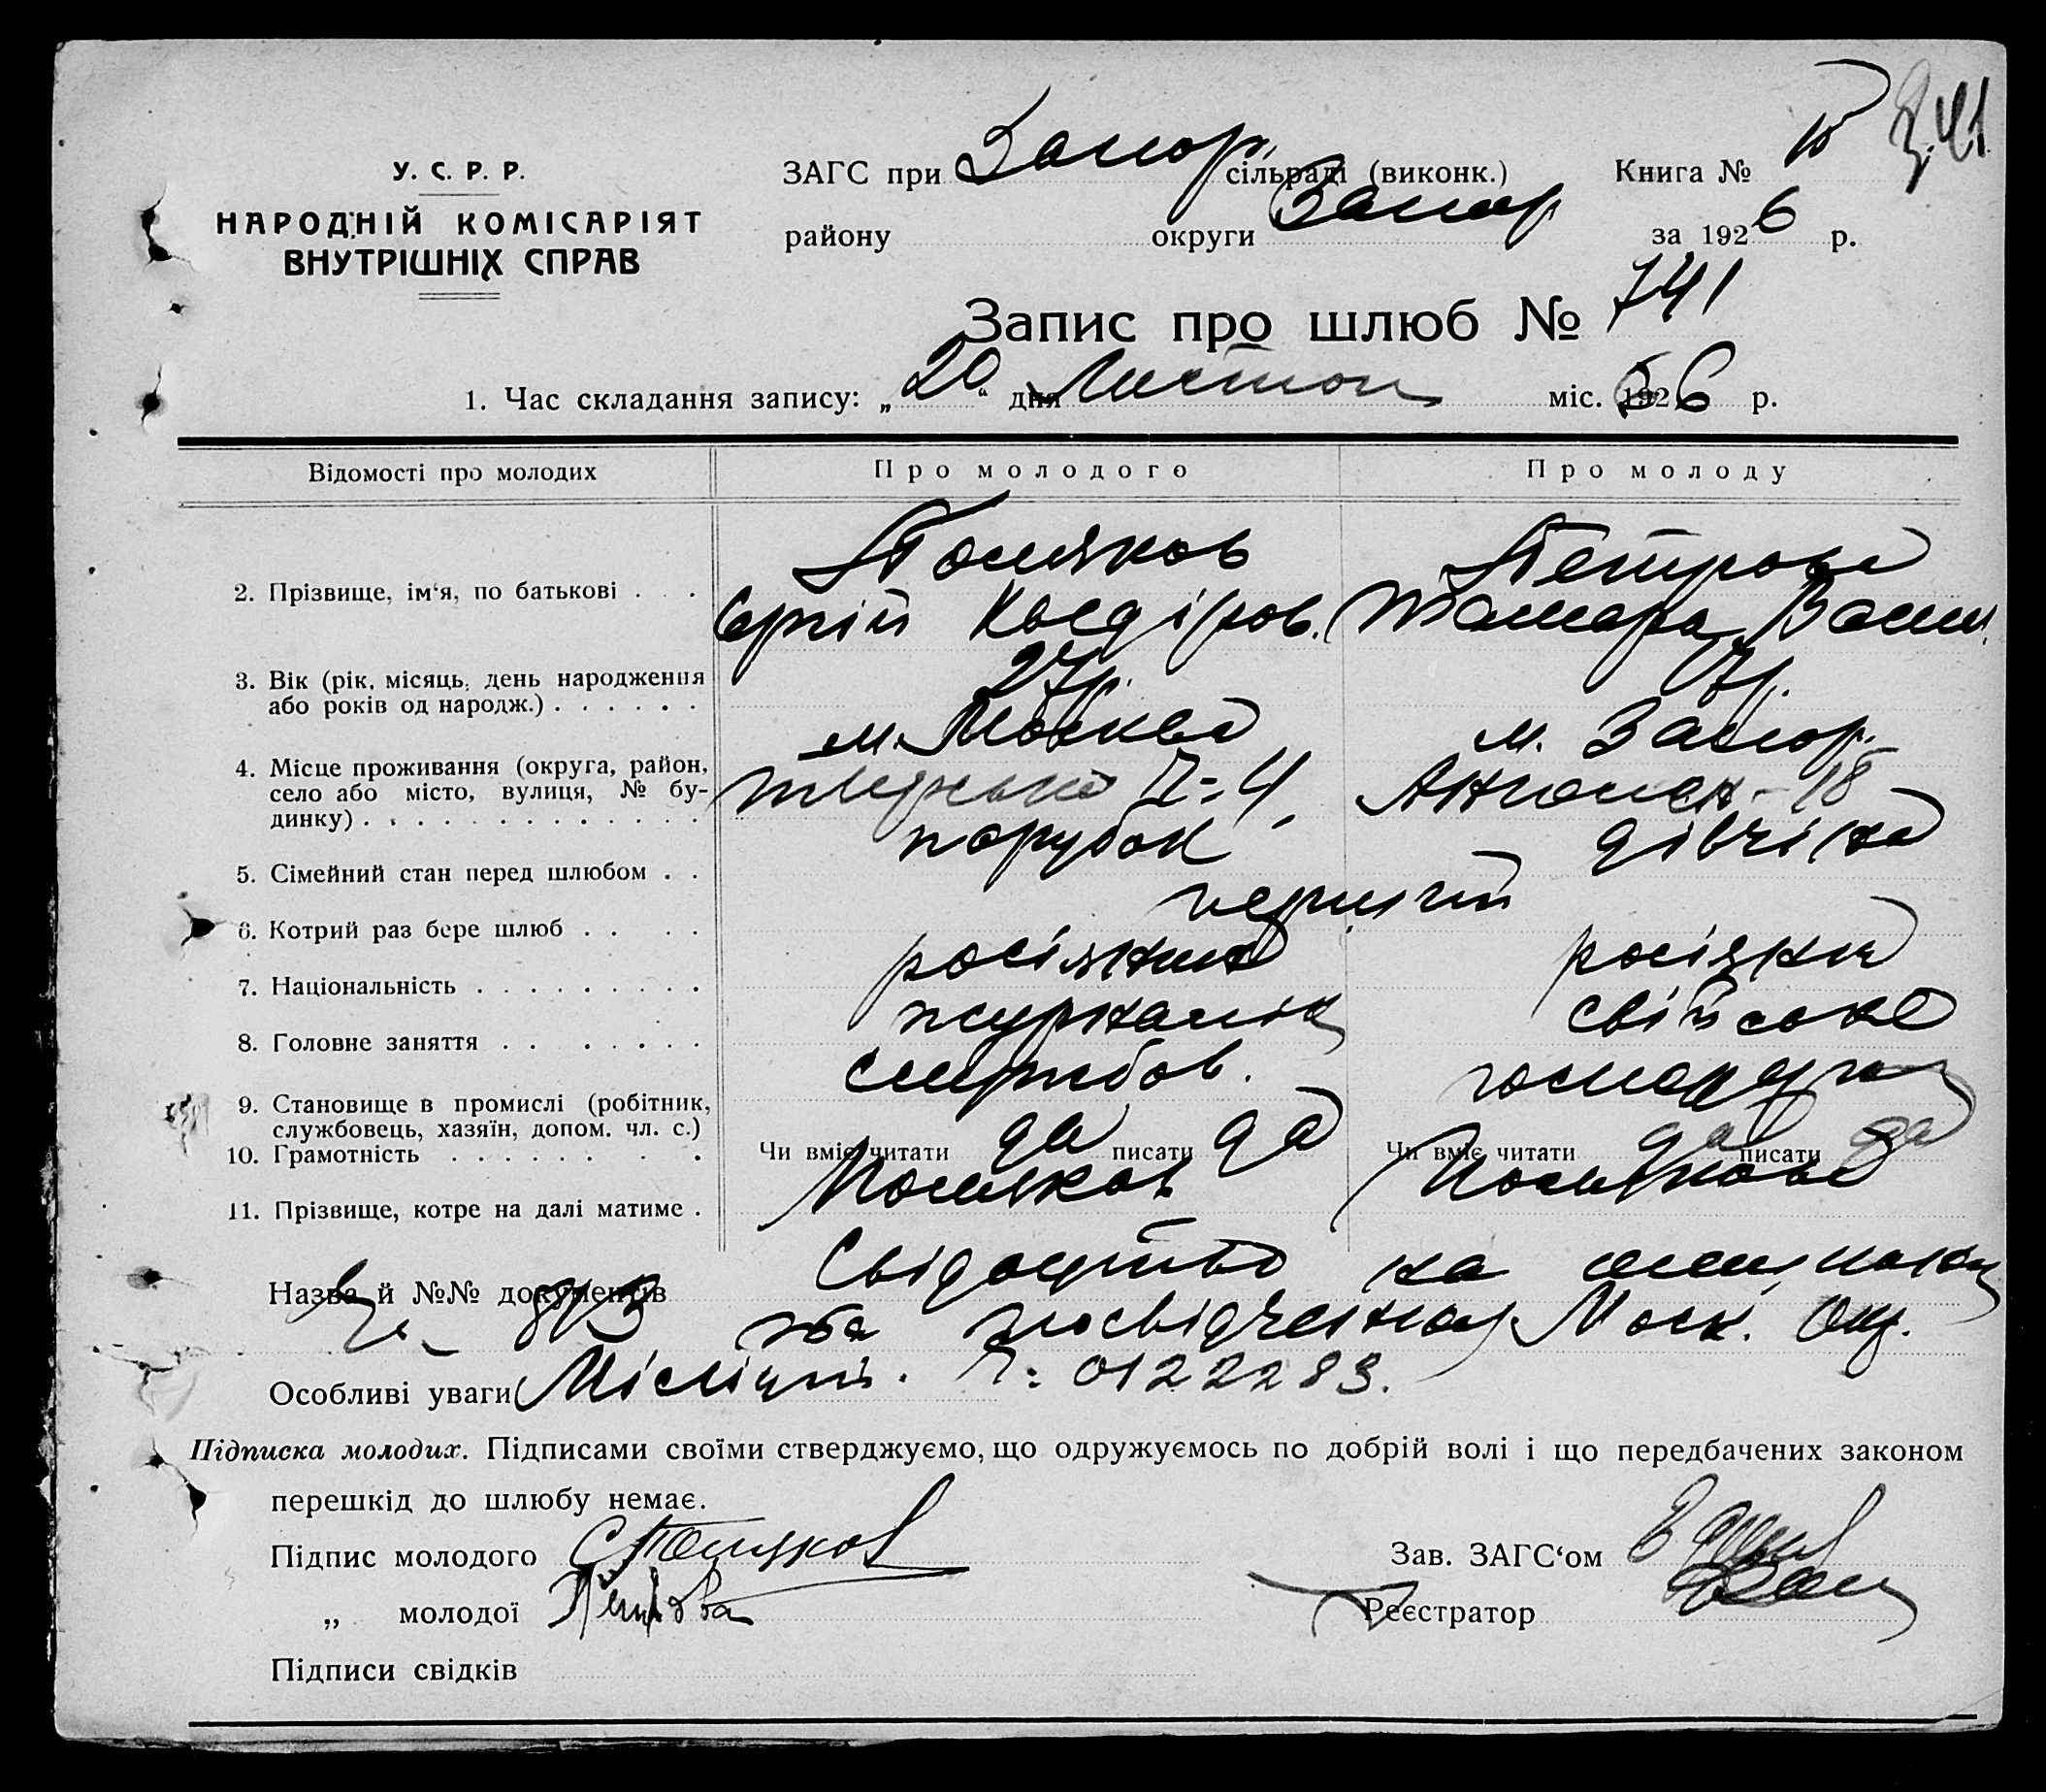 У. С. Р. Р.
НАРОДНІЙ КОМІСАРІЯТ
ВНУТРІШНІХ СПРАВ
ЗАГС при Запор. сільраді (виконк.) Книга №
району округи Запор за 1926 р.
Запис про шлюб № 741
1. Час складання запису: „20“ дня Листоп міс. 1926 р.
Відомості про молодих Про молодого Про молоду
2. Прізвище, ім‘я, по батькові . . . Поляков Петрова
Сергій Тамара Васил.
3. Вік (рік, місяць, день народження
або років од народж.) . . . . . . 27р.
4. Місце проживання (округа, район,
село або місто, вулиця, № бу-
динку) . . . . . . . . . . . . . . м. Москва м. Запор.
5. Сімейний стан перед шлюбом . . парубок дівчіна
6. Котрий раз бере шлюб . . . . перший
7. Національність . . . . . . . . . росіянин росіянка
8. Головне заняття . . . . . . . . журналіст свійське
9. Становище в промислі (робітник,
службовець, хазяїн, допом. чл. с.) службов. господар
10. Грамотність . . . . . . . . Чи вміє читати да писати да Чи вміє читати да писати да
11. Прізвище, котре на далі матиме . Поляков Полякова
Назва й №№ документів Свідоцтво на
813 та посвідчення Моск. Окр.
Особливі уваги Міліції. №: 0122283.
Підписка молодих. Підписами своїми стверджуємо, що одружуємось по добрій волі і що передбачених законом
перешкід до шлюбу немає.
Підпис молодого СПоляков Зав. ЗАГС‘ом
„ молодої Петрова Реєстратор
Підписи свідків